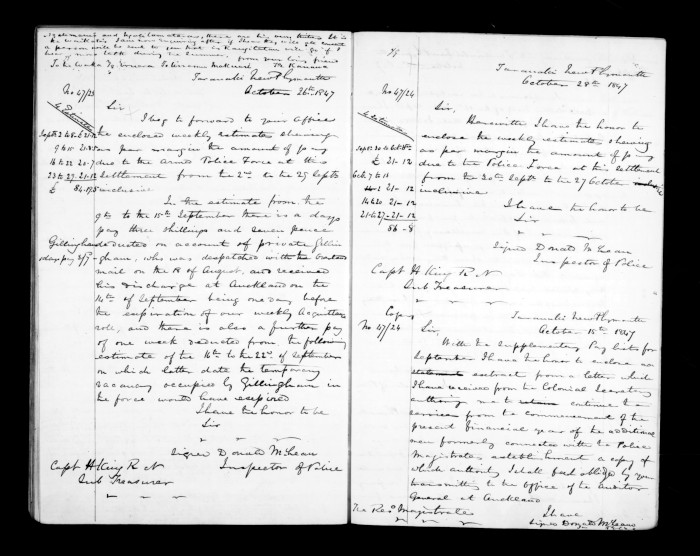 from your loving friend
Taranaki New Plymouth
October 26th 1847
No 47/23
Sir
I beg to forward to your Office
the enclosed weekly estimate shewing
as per margin the amount of pay
due to the Armed Police Force at this
Settlement from the 2nd to the 29 Septr
inclusive
In the estimate from the
9th to the 15th September there is a days
pay three shillings and seven pence
Gillinghams deducted on account of private Gillin
1 days pay 3/7 - gham, who was despatched with the
mail on the 18 of August, and received
his discharge at Auckland on the
14th of September being one day before
the expiration of our weekly Acquittance
role, and there is also a further pay
of one week deducted from the following
estimate of the 16th to the 22nd of September
on which latter date the temporary
vacancy occupied by Gillingham in
the force would have expired
I have the honor to be
Sir
Signed Donald McLean
Inspector of Police
Capt H King R N
Sub Treasurer
Taranaki New Plymouth
October 28th 1847
No 47/24
Sir,
Herewith I have the honor to
enclose the weekly estimate shewing
as per margin the amount of pay
due to the Police Force at this Settlement
from the 30th Septr to the 27 October
inclusive
I have the honor to be
Sir
Signed Donald McLean
Inspector of Police
Capt H King R N
Sub Treasurer
Taranaki New Plymouth
October 15th 1847
Copy
No 47/24
Sir,
With the Supplementary Pay lists for
September I have the honor to enclose an
statement extract from a letter which
I have received from the Colonial Secretary
authorizing me to return continue the
services from the commencement of the
present financial year of the additional
men formerly connected with the Police
Magistrates establishment a copy of
which authority I shall feel obliged by your
transmitting to the office of the Auditor
General at Auckland
I have
Signed Donald McLean
The Resd Magistrate